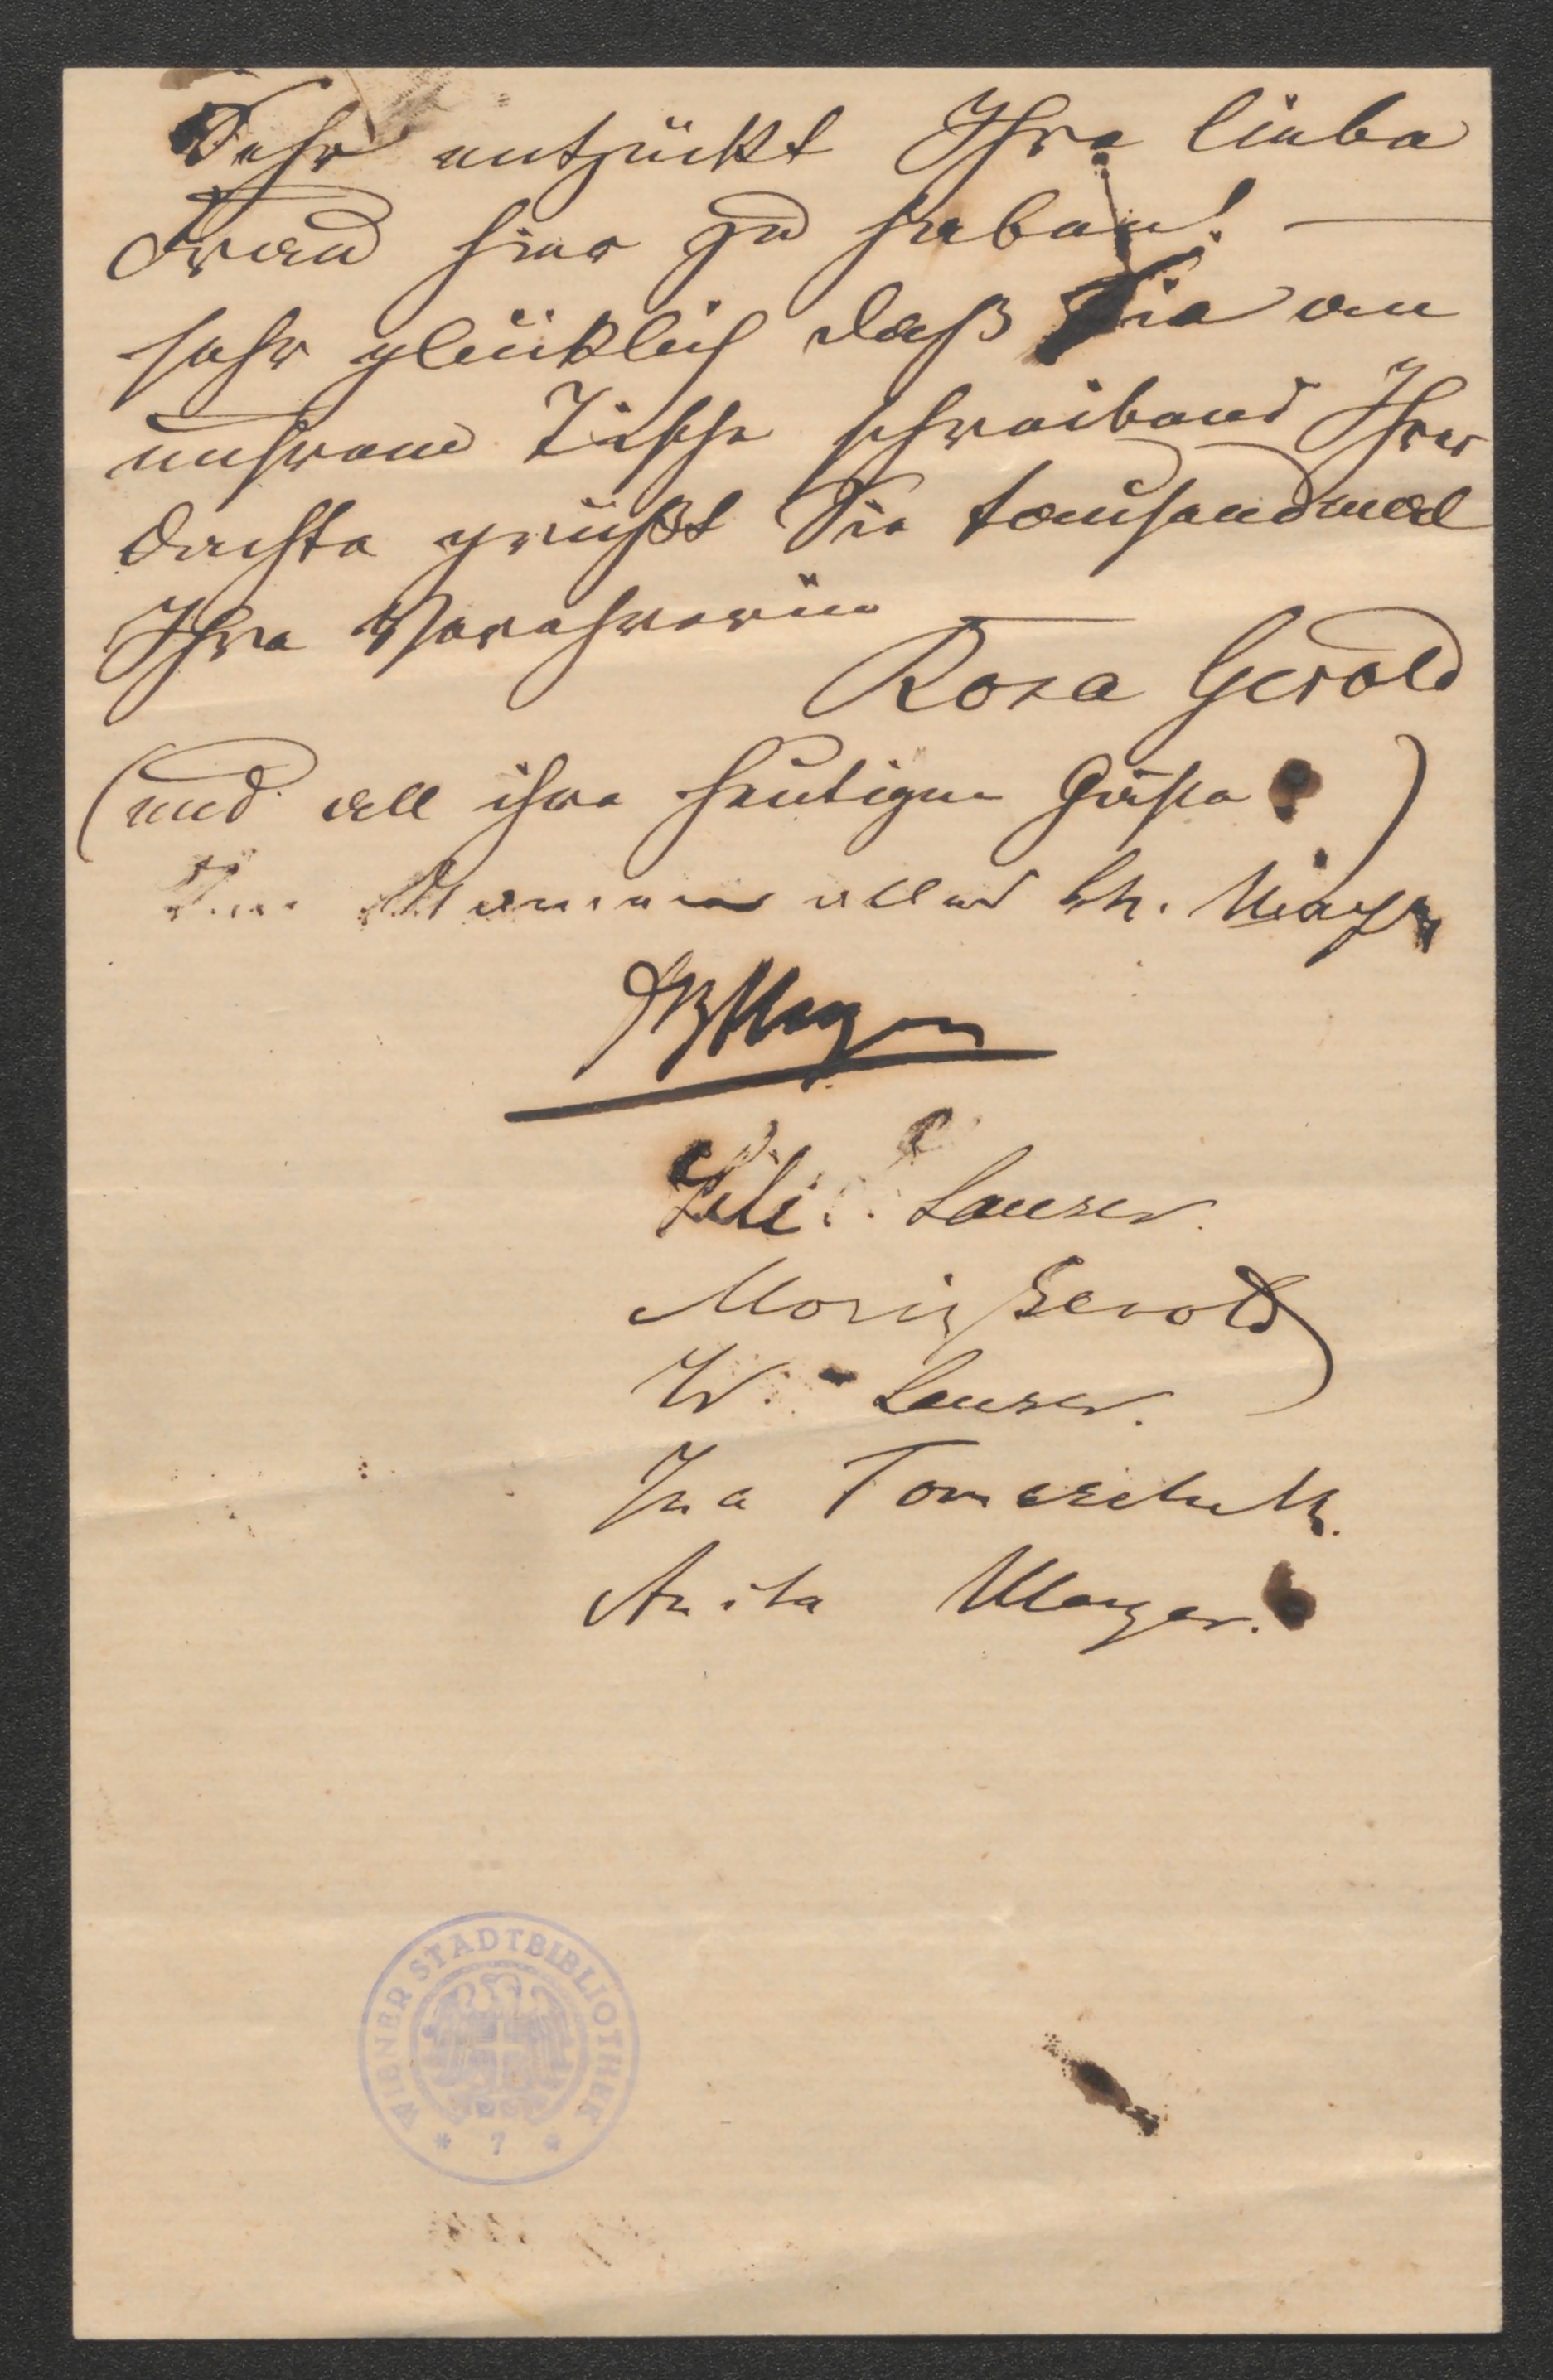 Sehr entzückt Ihre liebe
Frau hier zu haben! —
sehr glücklich daß Sie an
unsrem Tische schreibend Ihrer
dachte grüßt Sie tausendmal
Ihre Verehrerin —
Rosa Gerold
(und all ihre heutigen Gäste)
Im Namen aller
Mayer
Lili Lauser.
Moriz Gerold
W. Lauser.
Ina Tomaschek.
Anita Mayer.
WIENER STADTBIBLIOTHEK
* 7 *